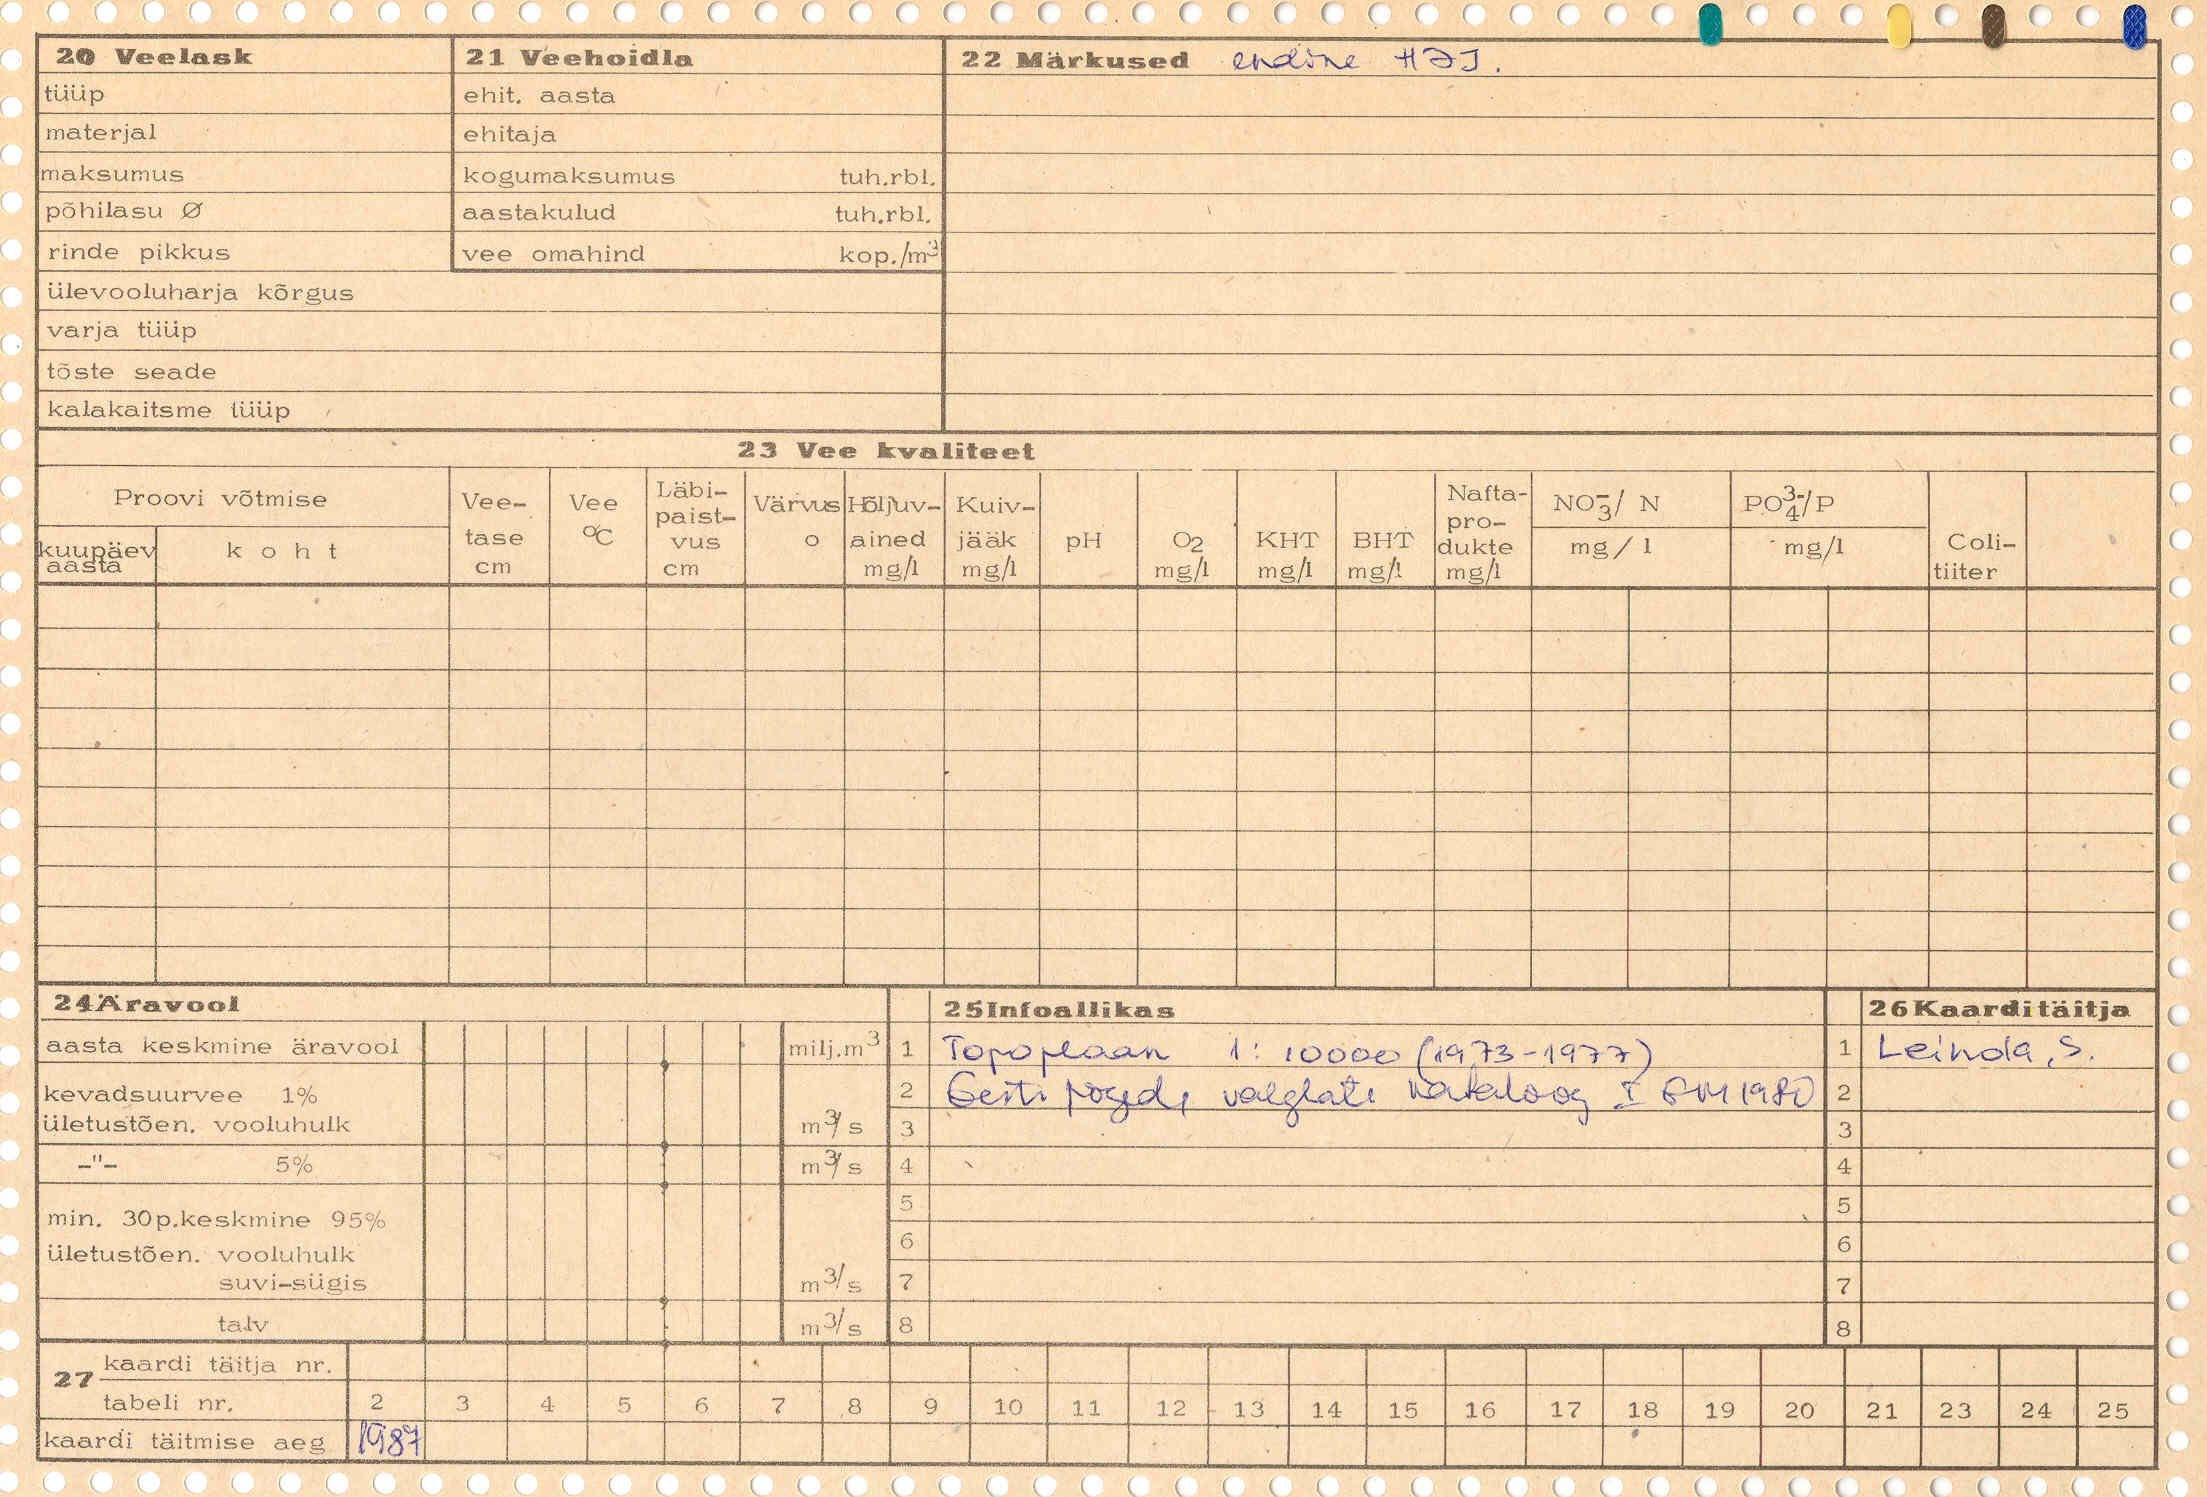 20 Veelask
tüüp
materjal
maksumus
põhilasu Ø
rinde pikkus
ülevooluharja kõrgus
varja tüüp
tõste seade
kalakaitsme tüüp
21 Veehoidla
ehit. aasta
ehitaja
kogumaksumus tuh.rbl.
aastakulud tuh.rbl.
vee omahind kop./m3
22 Märkused endine
23 Vee kvaliteet
Proovi võtmise
kuupäev aasta
koht
Vee-tase cm
Vee °C
Läbi-paist-vus cm
Värvus o
Hõljuv-ained mg/l
Kuiv-jääk mg/l
pH
O2 mg/l
KHT mg/l
BHT mg/l
Nafta-pro-dukte mg/l
NO3-/ N mg/l
PO43-/P mg/l
Coli-tiiter
24 Äravool
aasta keskmine äravool milj.m3
kevadsuurvee 1%
ületustõen. vooluhulk m3/s
-"- 5% m3/s
min. 30p.keskmine 95%
ületustõen. vooluhulk
suvi-sügis m3/s
talv m3/s
25 Infoallikas
1 Topoplaan 1: 10000 (1973-1977)
2 Eesti jõgede valglate kataloog I 1980
3
4
5
6
7
8
26 Kaarditäitja
1 Leinola, S.
2
3
4
5
6
7
8
27 kaardi täitja nr.
tabeli nr. 2 3 4 5 6 7 8 9 10 11 12 13 14 15 16 17 18 19 20 21 23 24 25
kaardi täitmise aeg 1987